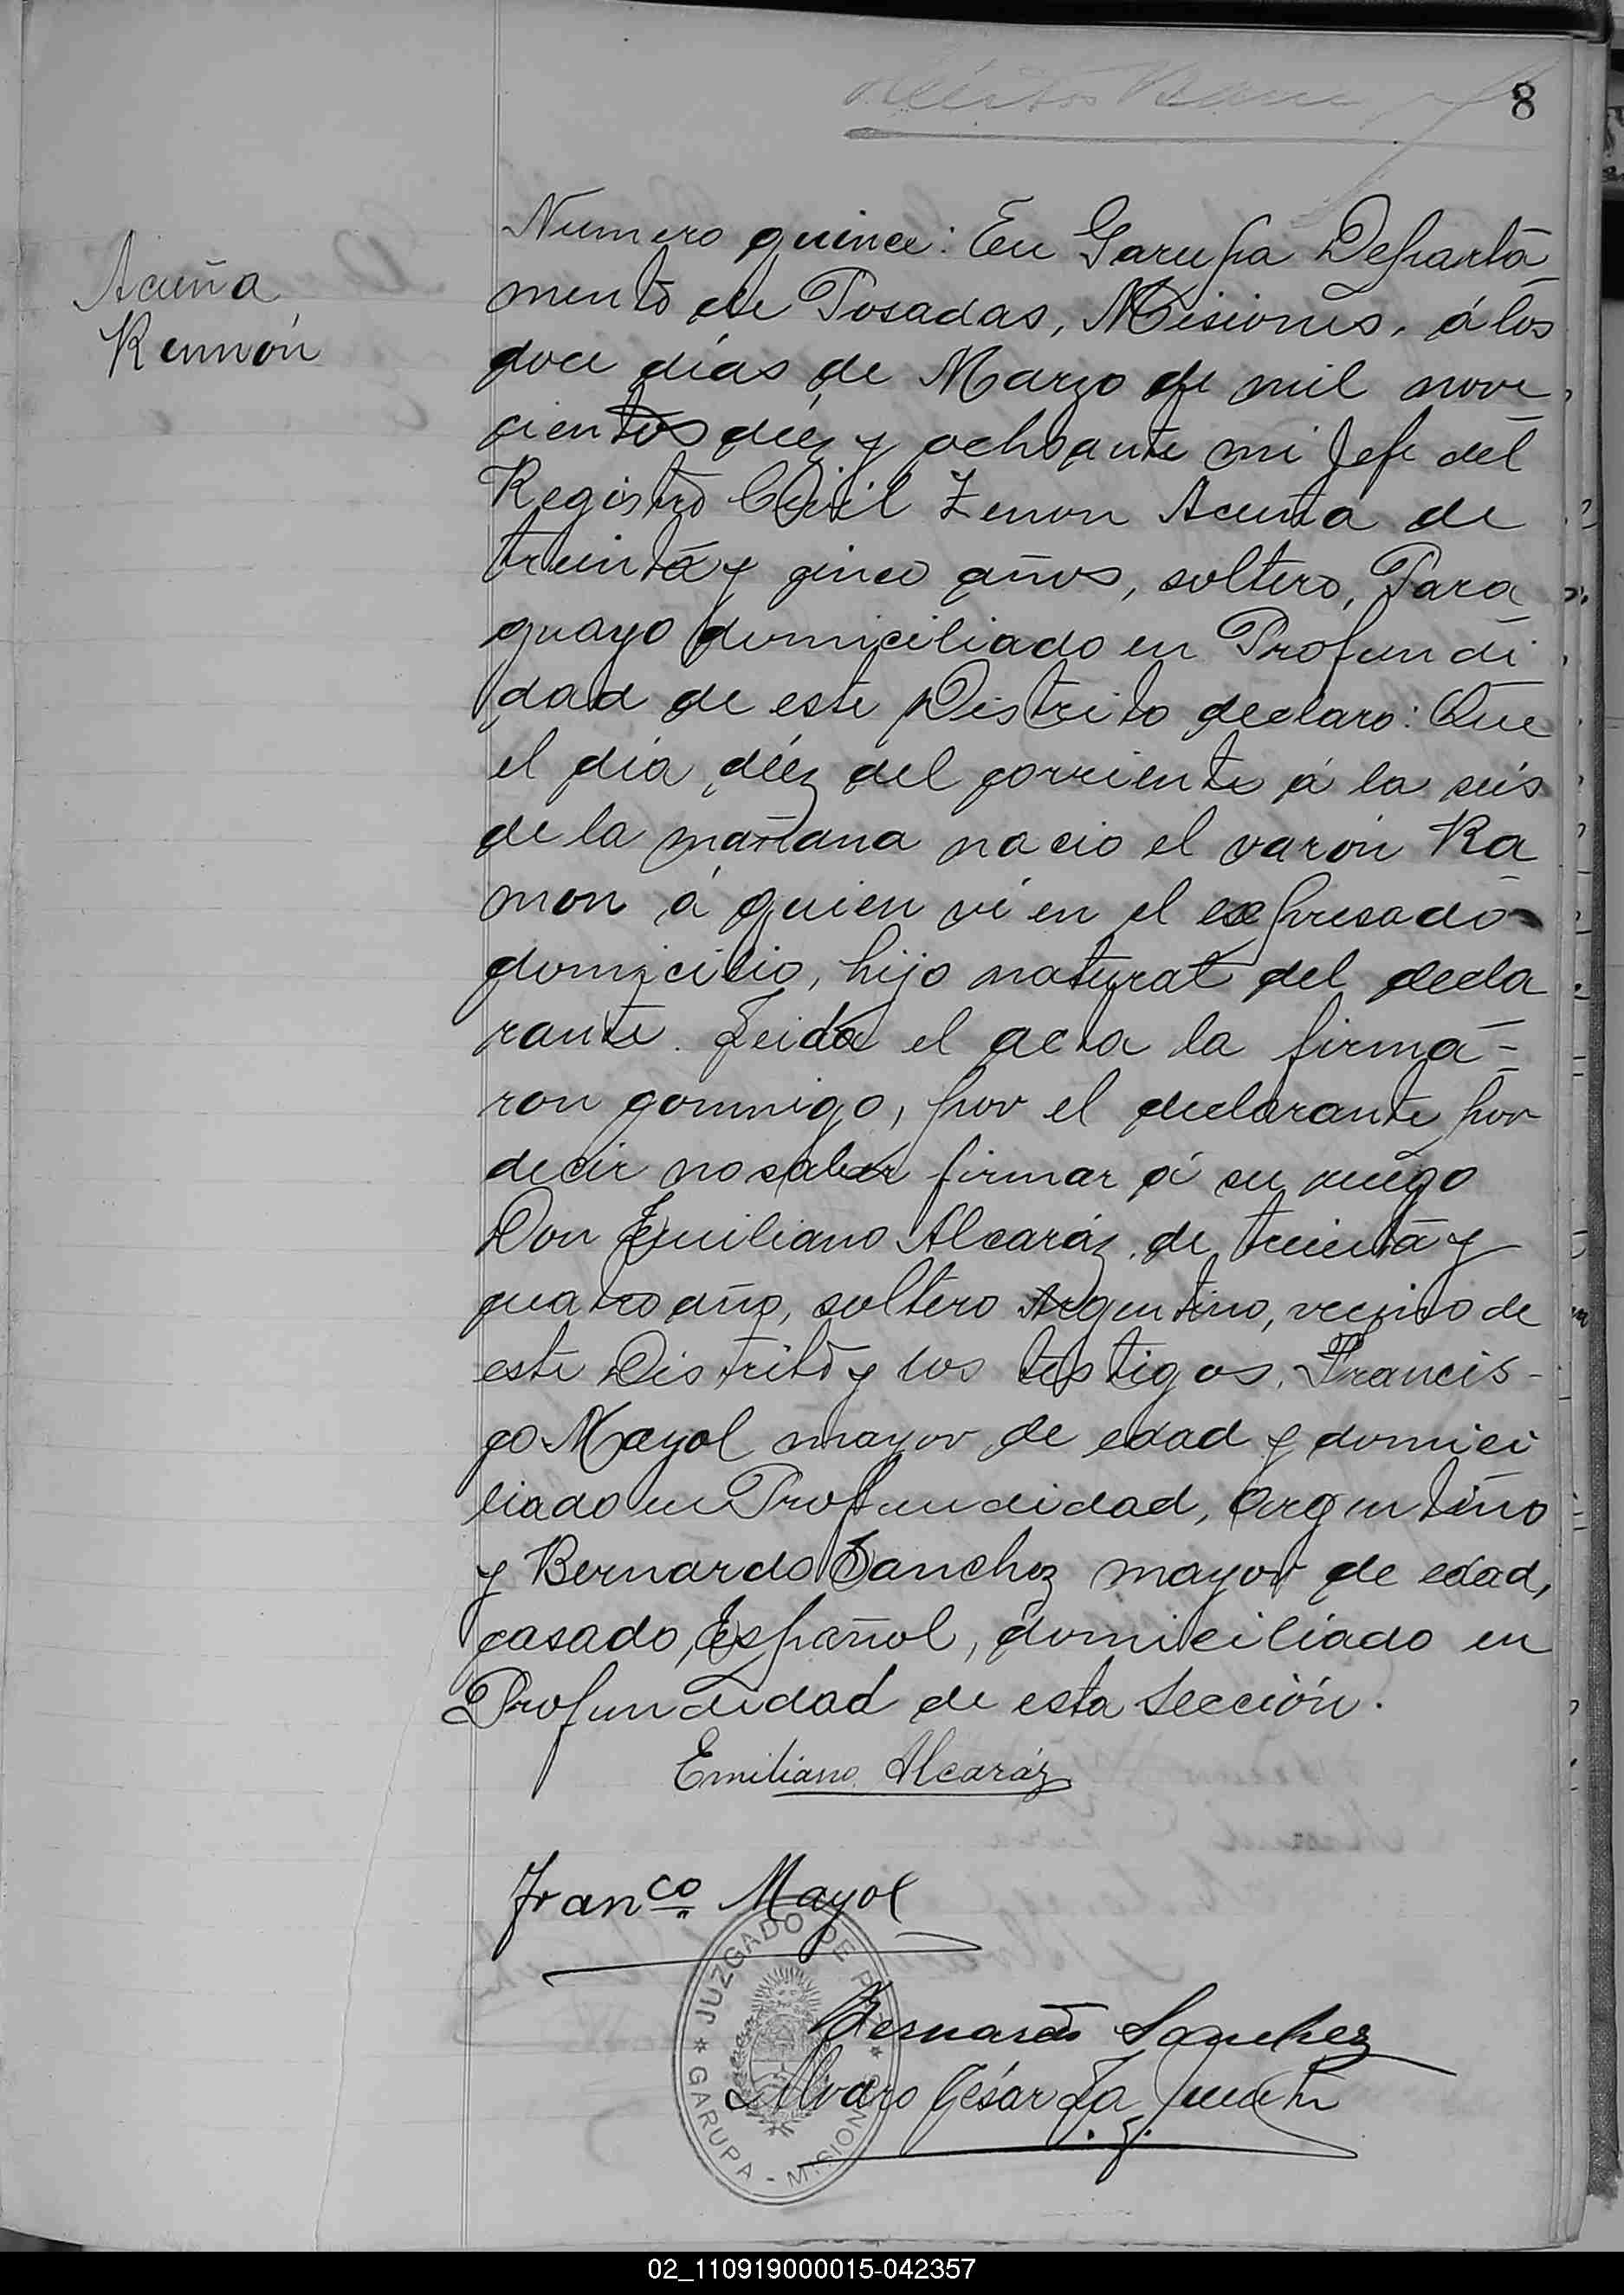 8
Acuña
Ramón
Numero quince: En Garupa Departa
mento de Posadas, Misiones, á los
doce días de Marzo de mil nove
cientos diéz y ocho ante mi Jefe del
Registro Civil Zenon Acuña de
treinta y cinco años, soltero, Para
guayo domiciliado en Profundi
dad de este Distrito declaro: Que
el día diéz del corriente á la seis
de la mañana nacio el varón Ra
mon á quien ví en el expresado
domicilio, hijo natural del decla
rante. Leida el acta la firma=
ron conmigo, por el declarante por
decir no saber firmar á su ruego
Don Emiliano Alcaráz de treinta y
cuatro año, soltero Argentino, vecino de
este Distrito y los testigos, Francis-
co Mayol mayor de edad y domici
liado en Profundidad, Argentino
y Bernardo Sanchez mayor de edad,
casado, Español, domiciliado en
Profundidad de esta Sección.
Emiliano Alcaráz
Franco Mayol
JUZGADO DE PAZ
Bernardo Sanchez
Alvaro César La
GARUPA - MISIONES
02_110919000015-042357